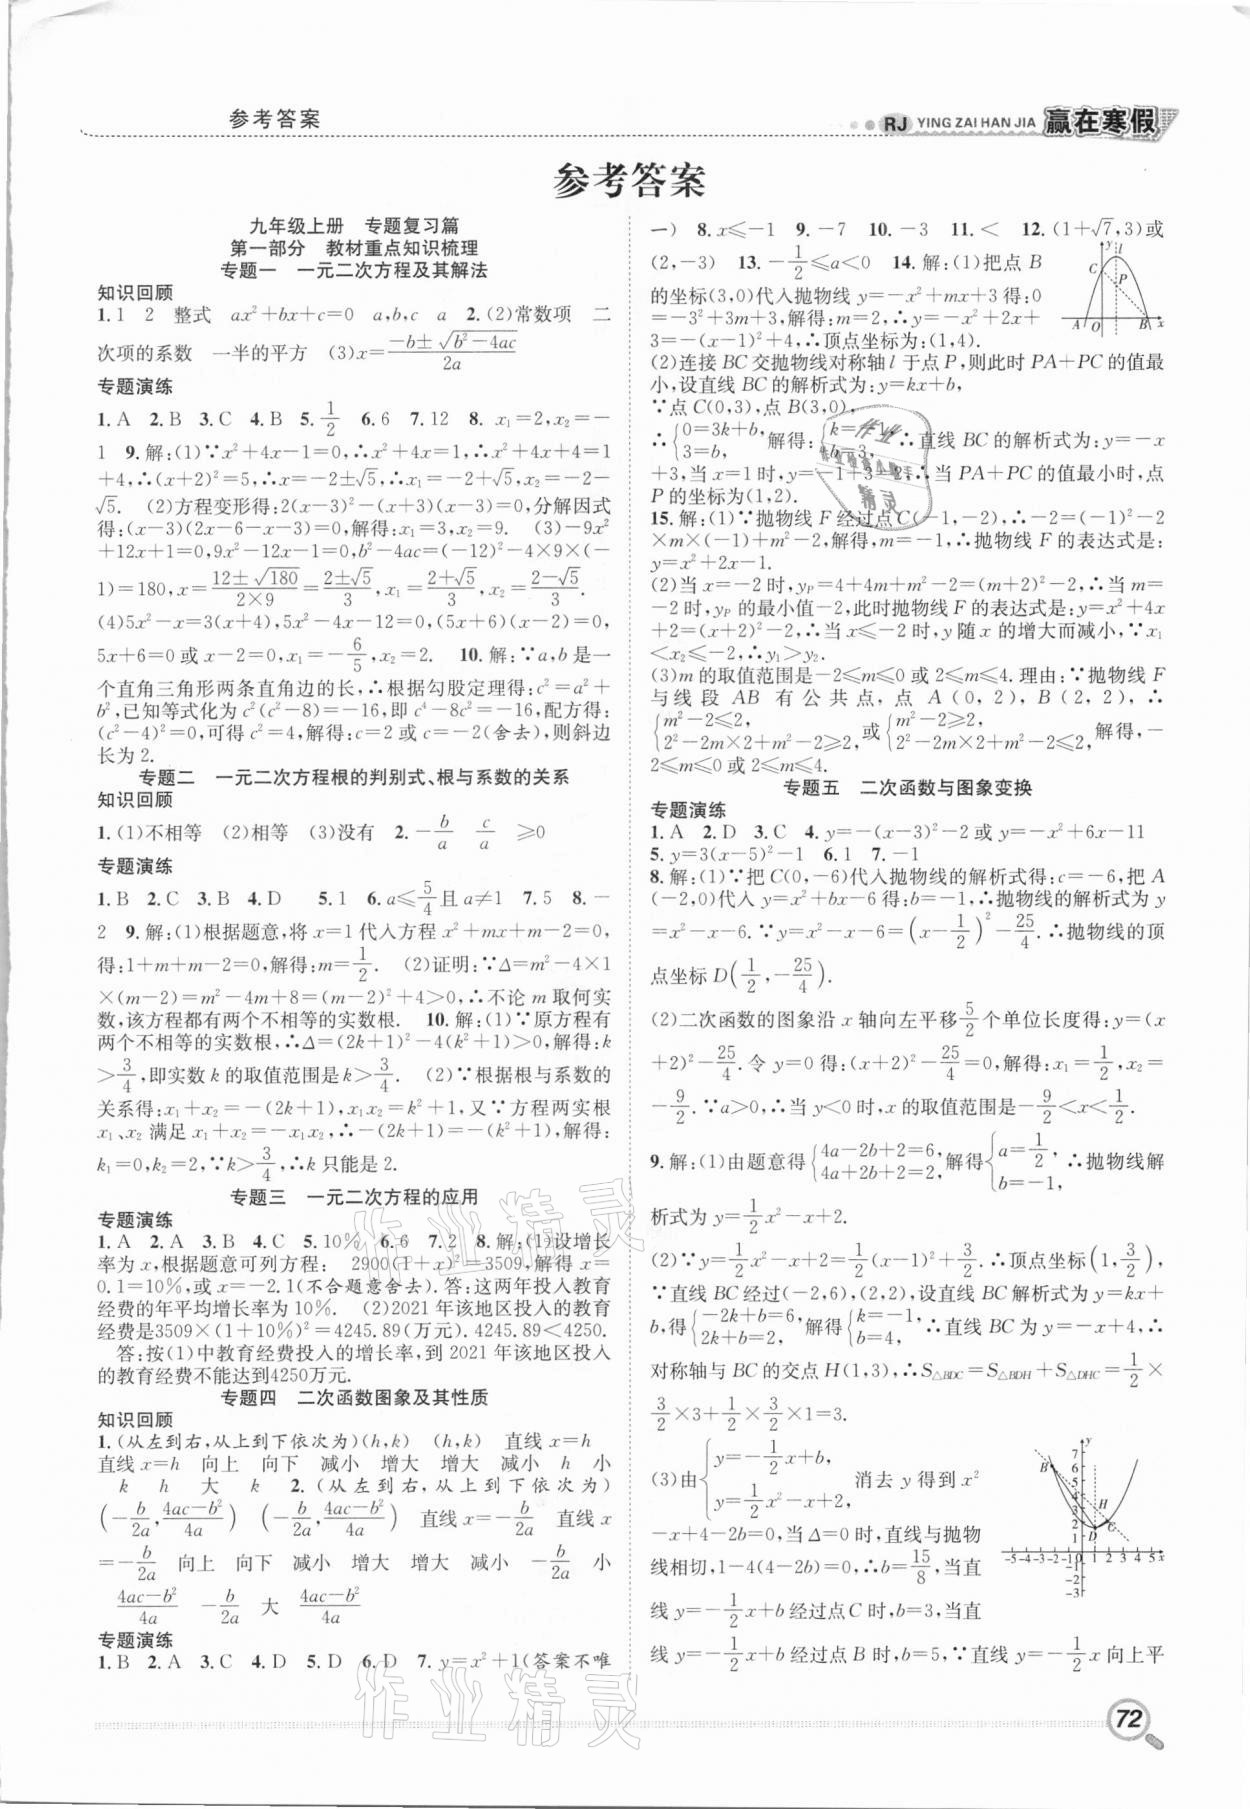 参考答案
RJ YING ZAI HAN JIA 赢在寒假
参考答案
九年级上册　专题复习篇
第一部分　教材重点知识梳理
专题一　一元二次方程及其解法
知识回顾
1.1　2　整式　ax²+bx+c=0　a,b,c　a　2.(2)常数项　二
次项的系数　一半的平方　(3)x=(-b±√(b²-4ac))/2a
专题演练
1.A　2.B　3.C　4.B　5.1/2　6.6　7.12　8.x₁=2,x₂=-
1　9.解:(1)∵x²+4x-1=0,∴x²+4x=1,∴x²+4x+4=1
+4,∴(x+2)²=5,∴x=-2±√5,∴x₁=-2+√5,x₂=-2-
√5.　(2)方程变形得:2(x-3)²-(x+3)(x-3)=0,分解因式
得:(x-3)(2x-6-x-3)=0,解得:x₁=3,x₂=9.　(3)-9x²
+12x+1=0,9x²-12x-1=0,b²-4ac=(-12)²-4×9×(-
1)=180,x=(12±√180)/(2×9)=(2±√5)/3,x₁=(2+√5)/3,x₂=(2-√5)/3.
(4)5x²-x=3(x+4),5x²-4x-12=0,(5x+6)(x-2)=0,
5x+6=0或x-2=0,x₁=-6/5,x₂=2.　10.解:∵a,b是一
个直角三角形两条直角边的长,∴根据勾股定理得:c²=a²+
b²,已知等式化为c²(c²-8)=-16,即c⁴-8c²=-16,配方得:
(c²-4)²=0,可得c²=4,解得:c=2或c=-2(舍去),则斜边
长为2.
专题二　一元二次方程根的判别式、根与系数的关系
知识回顾
1.(1)不相等　(2)相等　(3)没有　2.-b/a　c/a　≥0
专题演练
1.B　2.C　3.B　4.D　5.1　6.a≤5/4且a≠1　7.5　8.-
2　9.解:(1)根据题意,将x=1代入方程x²+mx+m-2=0,
得:1+m+m-2=0,解得:m=1/2.　(2)证明:∵Δ=m²-4×1
×(m-2)=m²-4m+8=(m-2)²+4>0,∴不论m取何实
数,该方程都有两个不相等的实数根.　10.解:(1)∵原方程有
两个不相等的实数根,∴Δ=(2k+1)²-4(k²+1)>0,解得:k
>3/4,即实数k的取值范围是k>3/4.　(2)∵根据根与系数的
关系得:x₁+x₂=-(2k+1),x₁x₂=k²+1,又∵方程两实根
x₁、x₂满足x₁+x₂=-x₁x₂,∴-(2k+1)=-(k²+1),解得:
k₁=0,k₂=2,∵k>3/4,∴k只能是2.
专题三　一元二次方程的应用
专题演练
1.A　2.A　3.B　4.C　5.10%　6.6　7.2　8.解:(1)设增长
率为x,根据题意可列方程:　2900(1+x)²=3509,解得x=
0.1=10%,或x=-2.1(不合题意舍去).答:这两年投入教育
经费的年平均增长率为10%.　(2)2021年该地区投入的教育
经费是3509×(1+10%)²=4245.89(万元).4245.89<4250.
答:按(1)中教育经费投入的增长率,到2021年该地区投入
的教育经费不能达到4250万元.
专题四　二次函数图象及其性质
知识回顾
1.(从左到右,从上到下依次为)(h,k)　(h,k)　直线x=h
直线x=h　向上　向下　减小　增大　增大　减小　h　小
k　h　大　k　2.(从左到右,从上到下依次为)
(-b/2a,(4ac-b²)/4a)　(-b/2a,(4ac-b²)/4a)　直线x=-b/2a　直线x
=-b/2a　向上　向下　减小　增大　增大　减小　-b/2a　小
(4ac-b²)/4a　-b/2a　大　(4ac-b²)/4a
专题演练
1.B　2.A　3.C　4.D　5.D　6.D　7.y=x²+1(答案不唯
一)　8.x≤-1　9.-7　10.-3　11.<　12.(1+√7,3)或
(2,-3)　13.-1/2≤a<0　14.解:(1)把点B
的坐标(3,0)代入抛物线y=-x²+mx+3得:0
=-3²+3m+3,解得:m=2,∴y=-x²+2x+
3=-(x-1)²+4,∴顶点坐标为:(1,4).
y l C P A O B x
(2)连接BC交抛物线对称轴l于点P,则此时PA+PC的值最
小,设直线BC的解析式为:y=kx+b,
∵点C(0,3),点B(3,0),
∴{0=3k+b, 3=b, 解得:{k=-1, b=3, ∴直线BC的解析式为:y=-x
+3,当x=1时,y=-1+3=2,∴当PA+PC的值最小时,点
P的坐标为(1,2).
15.解:(1)∵抛物线F经过点C(-1,-2),∴-2=(-1)²-2
×m×(-1)+m²-2,解得,m=-1,∴抛物线F的表达式是:
y=x²+2x-1.
(2)当x=-2时,yP=4+4m+m²-2=(m+2)²-2,∴当m=
-2时,yP的最小值-2,此时抛物线F的表达式是:y=x²+4x
+2=(x+2)²-2,∴当x≤-2时,y随x的增大而减小,∵x₁
<x₂≤-2,∴y₁>y₂.
(3)m的取值范围是-2≤m≤0或2≤m≤4.理由:∵抛物线F
与线段AB有公共点,点A(0,2),B(2,2),∴
{m²-2≤2, 2²-2m×2+m²-2≥2, 或{m²-2≥2, 2²-2m×2+m²-2≤2, 解得,-
2≤m≤0或2≤m≤4.
专题五　二次函数与图象变换
专题演练
1.A　2.D　3.C　4.y=-(x-3)²-2或y=-x²+6x-11
5.y=3(x-5)²-1　6.1　7.-1
8.解:(1)∵把C(0,-6)代入抛物线的解析式得:c=-6,把A
(-2,0)代入y=x²+bx-6得:b=-1,∴抛物线的解析式为y
=x²-x-6.∵y=x²-x-6=(x-1/2)²-25/4.∴抛物线的顶
点坐标D(1/2,-25/4).
(2)二次函数的图象沿x轴向左平移5/2个单位长度得:y=(x
+2)²-25/4.令y=0得:(x+2)²-25/4=0,解得:x₁=1/2,x₂=
-9/2.∵a>0,∴当y<0时,x的取值范围是-9/2<x<1/2.
9.解:(1)由题意得{4a-2b+2=6, 4a+2b+2=2, 解得{a=1/2, b=-1, ∴抛物线解
析式为y=1/2x²-x+2.
(2)∵y=1/2x²-x+2=1/2(x-1)²+3/2.∴顶点坐标(1,3/2),
∵直线BC经过(-2,6),(2,2),设直线BC解析式为y=kx+
b,得{-2k+b=6, 2k+b=2, 解得{k=-1, b=4, ∴直线BC为y=-x+4,∴
对称轴与BC的交点H(1,3),∴S△BDC=S△BDH+S△DHC=1/2×
3/2×3+1/2×3/2×1=3.
(3)由{y=-1/2x+b, y=1/2x²-x+2, 消去y得到x²
-x+4-2b=0,当Δ=0时,直线与抛物
线相切,1-4(4-2b)=0,∴b=15/8,当直
线y=-1/2x+b经过点C时,b=3,当直
线y=-1/2x+b经过点B时,b=5,∵直线y=-1/2x向上平
y 7 6 5 4 3 2 1 B H C D -5-4-3-2-10 1 2 3 4 5 x -1 -2 -3
作业精灵
作业精灵
72